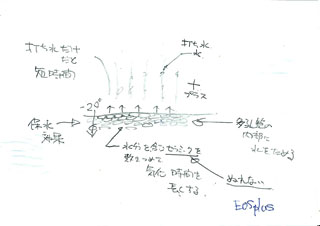 打ち水だけ
だと
短時間
打ち水
水
+
プラス
-2°
保水
効果
多孔質の
内部に
水をためる
水分を含むセラミックを
敷きつめて
気化時間を
長くする
ぬれない
EOSplus